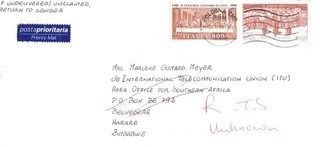 F UNDELIVERED/UNCLAIMED,
RETURN TO SENDER
postaprioritaria
Priority Mail
ITALIA 800
MRS. MARLENE GOMARD MEYER
C/O INTERNATIONAL TELECOMMUNICATION UNION (ITU)
AREA OFFICE FOR SOUTHERN AFRICA
P O BOX BE 792
BELVEDERE
HARARE
ZIMBABWE
R T S
Unknown